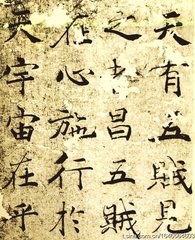 天有五賊見
之者昌五賊
在心施行於
天宇宙在乎